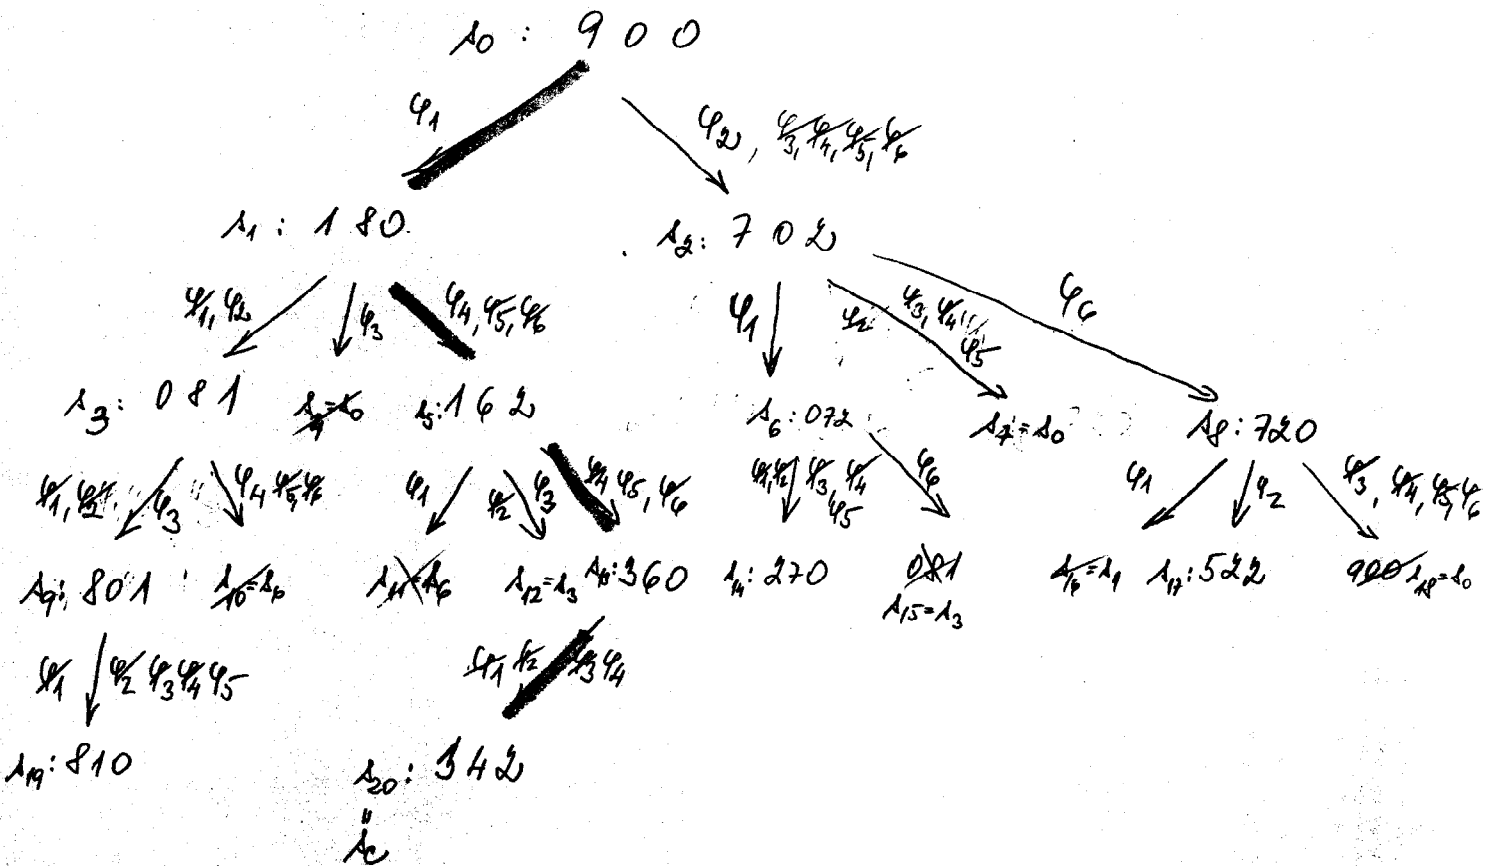 s0 : 9 0 0
φ1 φ2, φ3, φ4, φ5, φ6
s1 : 1 8 0 s2 : 7 0 2
φ1, φ2 φ3 φ4, φ5, φ6 φ1 φ2 φ3, φ4 φ5 φ6
s3 : 0 8 1 s4=s0 s5:162 s6:072 s7=s0 s8:720
φ1, φ2 φ3 φ4 φ5 φ6 φ1 φ2 φ3 φ4 φ5, φ6 φ1, φ2 φ3, φ4 φ5 φ6 φ1 φ2 φ3, φ4, φ5, φ6
s9: 801 s10=s0 s11=s6 s12=s3 s13:360 s14:270 081 s16=s1 s17:522 900 s18=s0
s15=s3
φ1 φ2 φ3 φ4 φ5 φ1 φ2 φ3 φ4
s19:810 s20: 342
"
sc